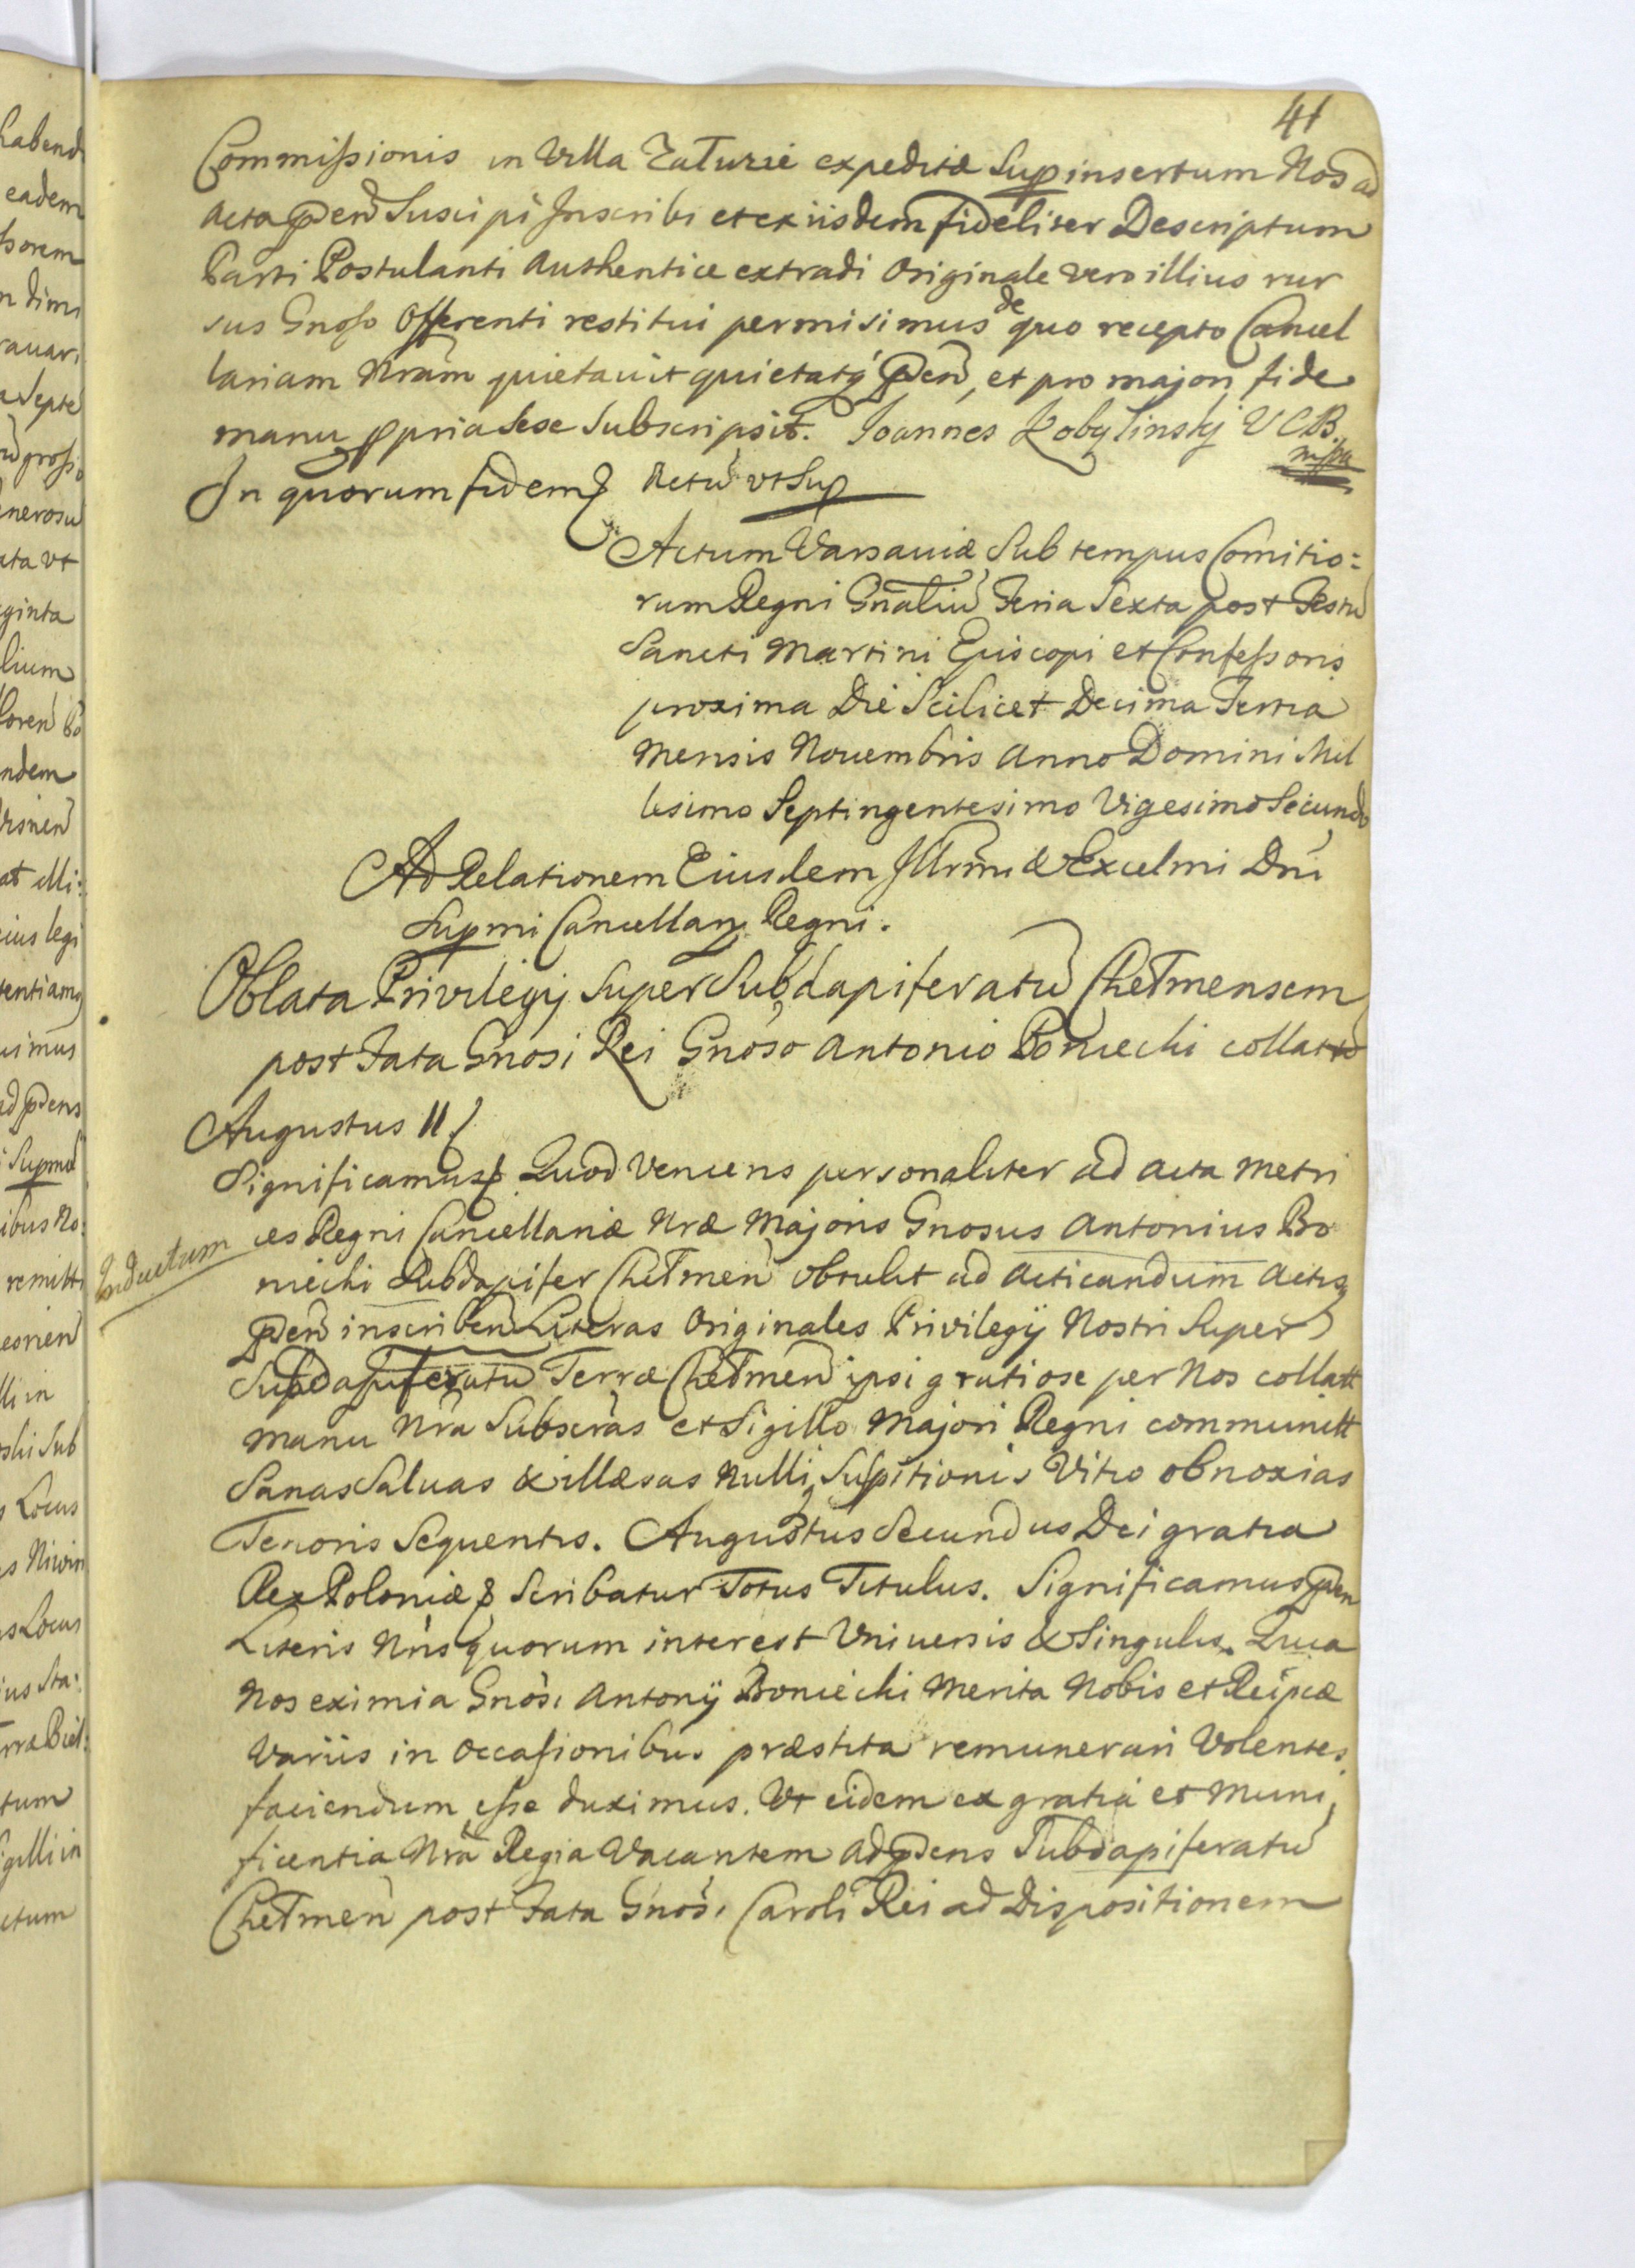 41
Commissionis in Villa Zaturze expeditæ Sup insertum Nos ad
Acta pñ Suscipi Inscribi et ex iisdem fideliter Descriptum
Parti Postulanti Authentice extradi Originale vero illius rur
sus Gnoso Offerenti restitui permisimus de quo recepto Cancel
lariam Nram quietavit quietatq pñ, et pro majori fide
manu ppria sese Subscripsit. Joannes Kobylinskj V C B.
mppa
In quorum fidem Actũ vt Sup
Actum Varsaviæ Sub tempus Comitio:
rum Regni Gñaliũ Feria Sexta post Festũ
Sancti Martini Episcopi et Confessoris
proxima Die Scilicet Decima Tertia
Mensis Novembris Anno Domini Mil
lesimo Septingentesimo Vigesimo Secundo
Ad Relationem Eiusdem Illrmi & Excelmi Dni
Supmi Cancellarij Regni.
Oblata Privilegij Super Subdapiferatũ Chełmensem
post Fata Gnosi Rei Gnoso Antonio Boniecki collato
Augustus II
Significamus Quod Veniens personaliter ad acta Metri
ces Regni Cancellariæ Nræ Majoris Gnosus Antonius Bo
niecki Subdapifer Chełmeñ obtulit ad Acticandum Actisq
Inductum
pñ inscribeñ Literas Originales Privilegij Nostri Super
Subdapiferatũ Terræ Chełmeñ ipsi gratiose per Nos collatt
manu Nra Subscras et Sigillo Majori Regni communitt
Sanas Salvas & illæsas Nulli Suspitionis Vitio obnoxias
Tenoris Sequentis. Augustus Secundus Dei gratia
Rex Poloniæ & Scribatur Totus Titulus. Significamus pñ
Literis Nris quorum interest Vniversis & Singulis. Quia
Nos eximia Gnosi Antonij Boniecki Merita Nobis et Reipcæ
Variis in Occasionibus præstita remunerari Volentes
faciendum esse duximus. Vt eidem ex gratia et Muni
ficentia Nra Regia Vacantem ad pñs Subdapiferatũ
Chełmeñ post Fata Gnosi Caroli Rei ad Dispositionem